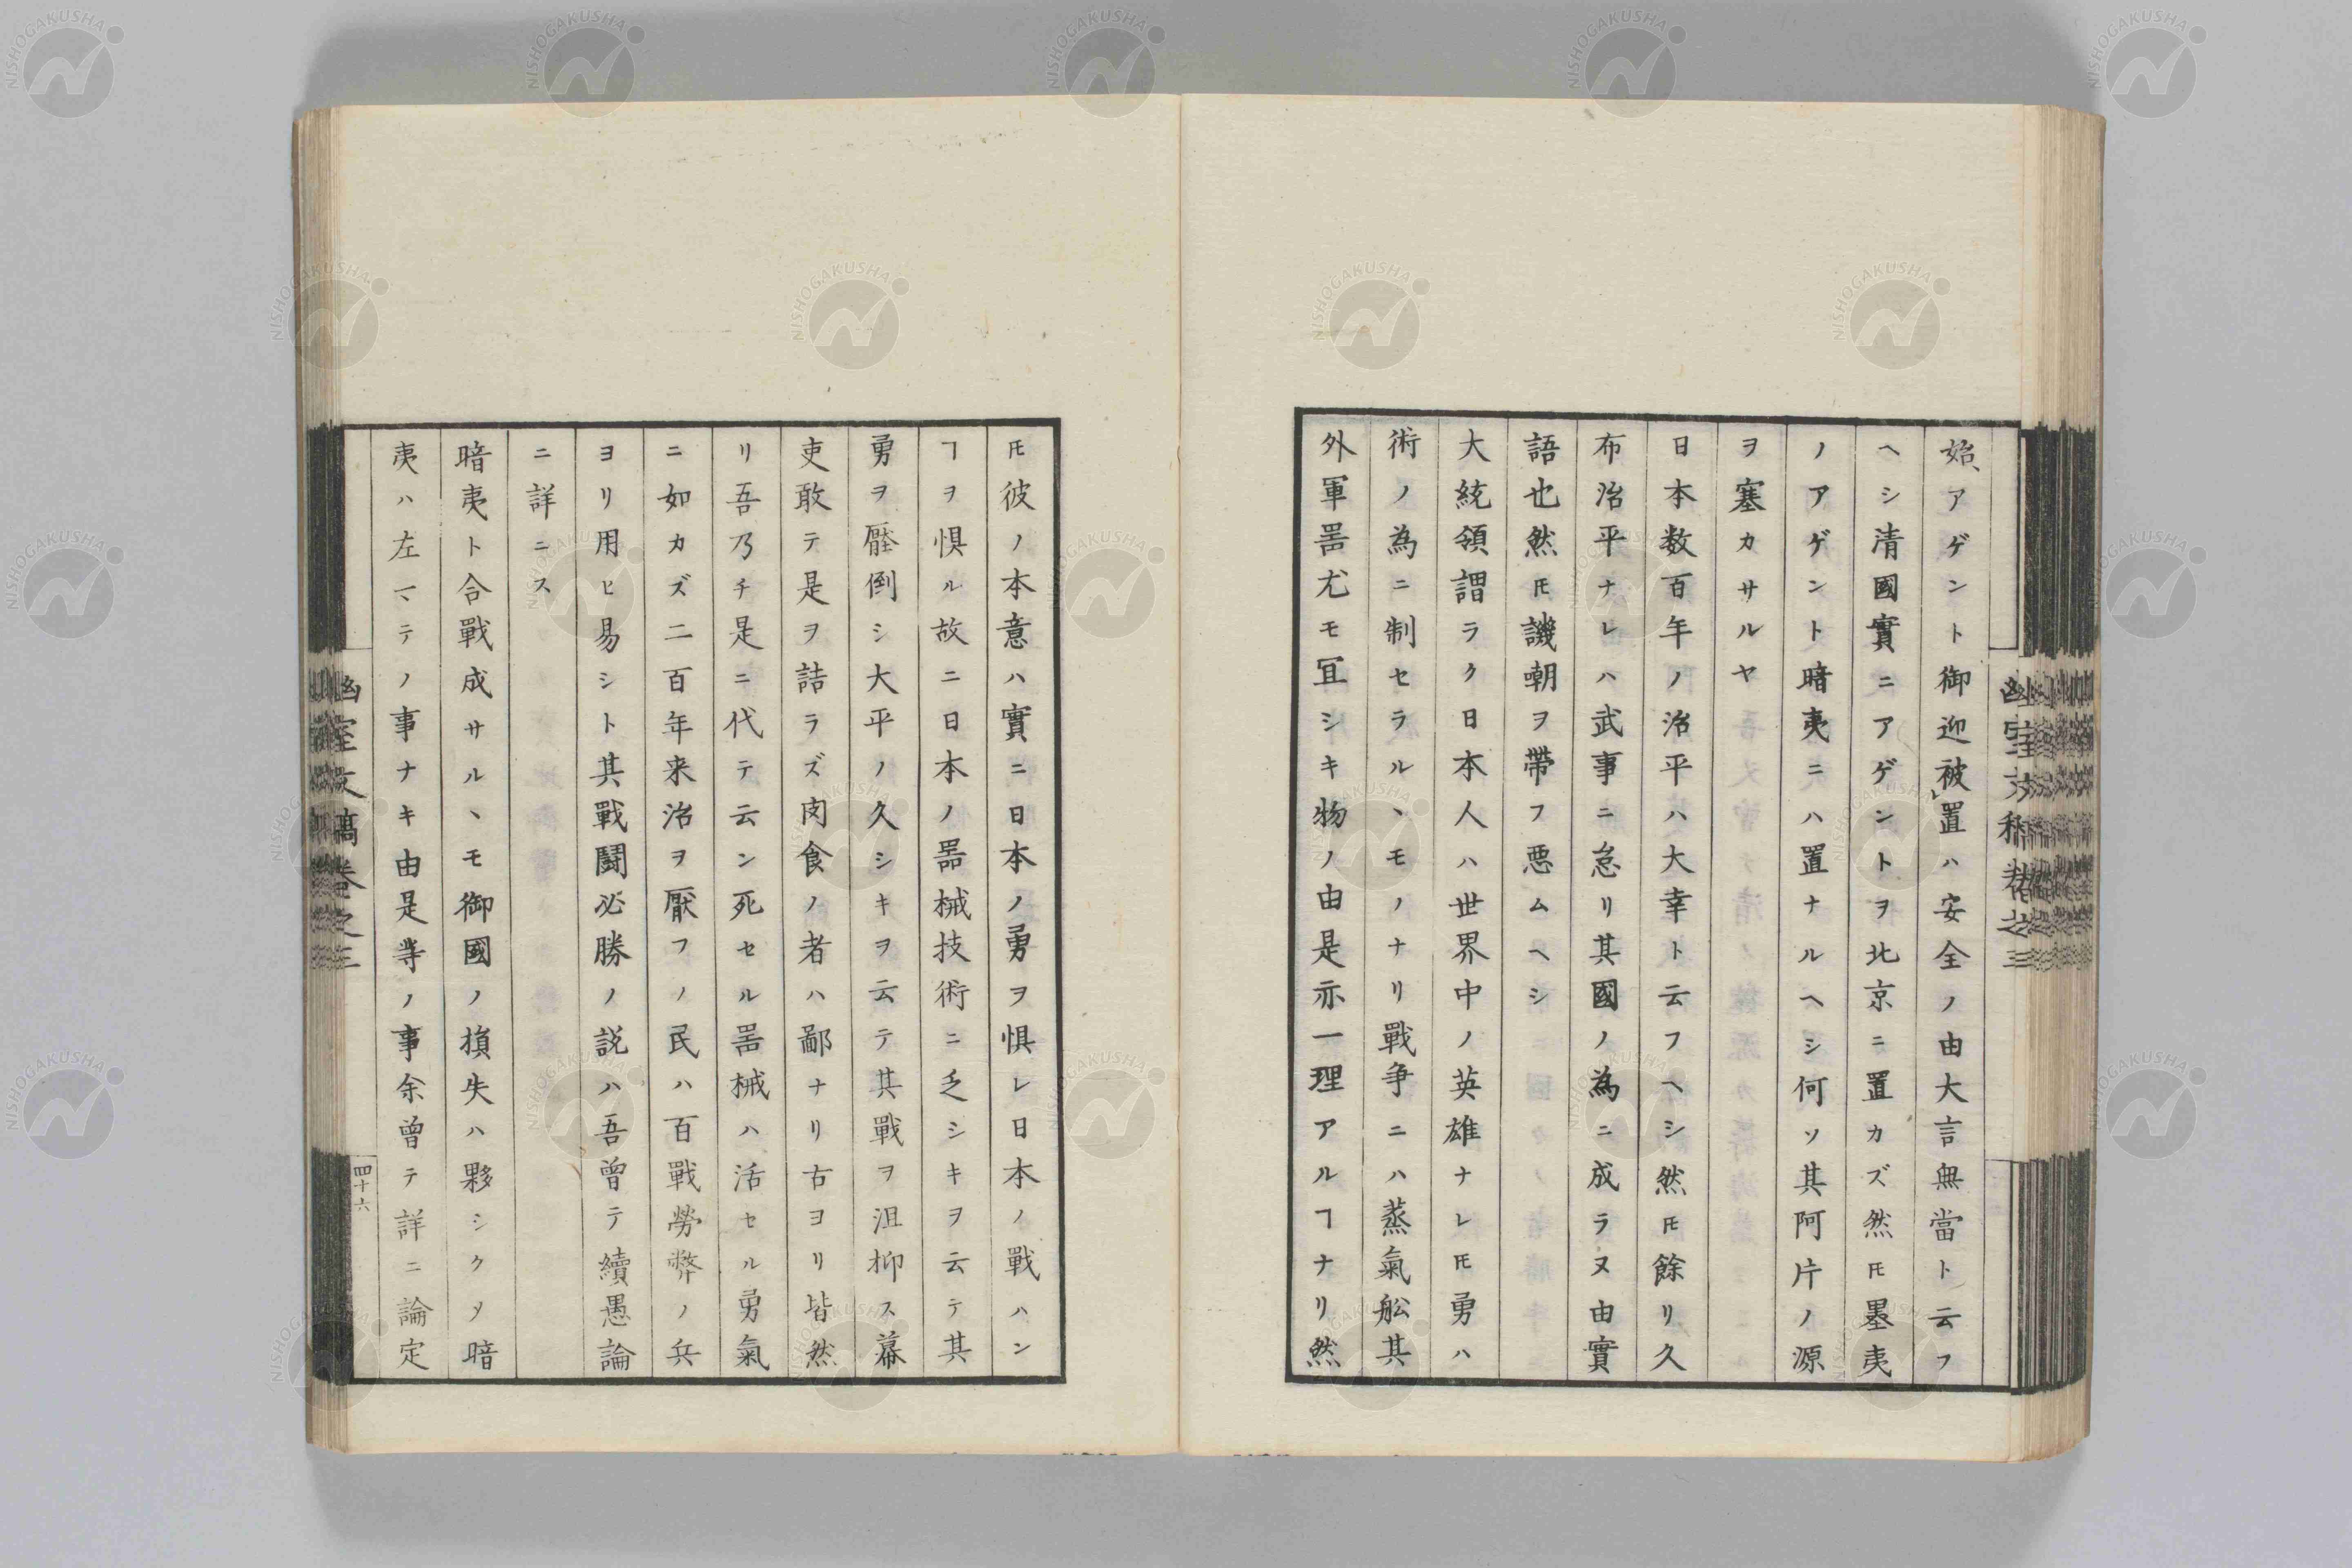 始、アゲント御迎被置ハ安全ノ由大言無當ト云フ
ヘシ清國實ニアゲントヲ北京ニ置カズ然𪜈墨夷
ノアゲント暗夷ニハ置ナルヘシ何ソ其阿片ノ源
ヲ塞カサルヤ
日本数百年ノ治平ハ大幸ト云フヘシ然𪜈餘リ久
布治平ナレハ武事ニ怠リ其國ノ為ニ成ラヌ由實
語也然𪜈譏嘲ヲ帶フ悪ムヘシ
大統領謂ラク日本人ハ世界中ノ英雄ナレ𪜈勇ハ
術ノ為ニ制セラルヽモノナリ戰争ニハ蒸氣舩其
外軍噐尤モ冝シキ物ノ由是亦一理アルヿナリ然
𪜈彼ノ本意ハ實ニ日本ノ勇ヲ惧レ日本ノ戰ハン
ヿヲ惧ル故ニ日本ノ噐械技術ニ乏シキヲ云テ其
勇ヲ壓倒シ大平ノ久シキヲ云テ其戰ヲ沮抑ス幕
吏敢テ是ヲ詰ラズ肉食ノ者ハ鄙ナリ古ヨリ皆然
リ吾乃チ是ニ代テ云ン死セル噐械ハ活セル勇氣
ニ如カズ二百年来治ヲ厭フノ民ハ百戰勞弊ノ兵
ヨリ用ヒ易シト其戰鬪必勝ノ説ハ吾曾テ續愚論
ニ詳ニス
暗夷ト合戰成サルヽモ御國ノ損失ハ夥シクソ暗
夷ハ左マテノ事ナキ由是等ノ事余曾テ詳ニ論定
幽室文稿卷之三
四十六
NISHOGAKUSHA